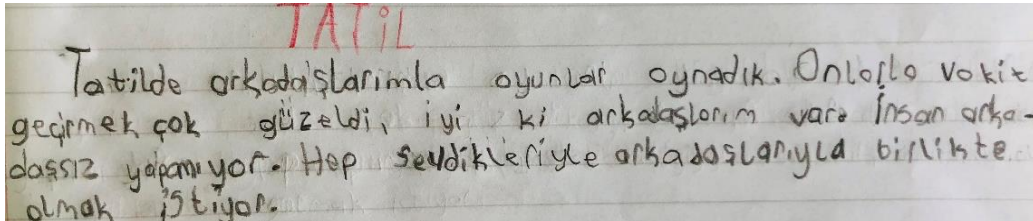 TATİL
Tatilde arkadaşlarimla oyunlar oynadık. Onlarla vakit
geçirmek çok güzeldi, iyi ki arkadaşlarım var. İnsan arka-
daşsız yapamıyor. Hep sevdikleriyle arkadaşlarıyla birlikte
olmak istiyor.